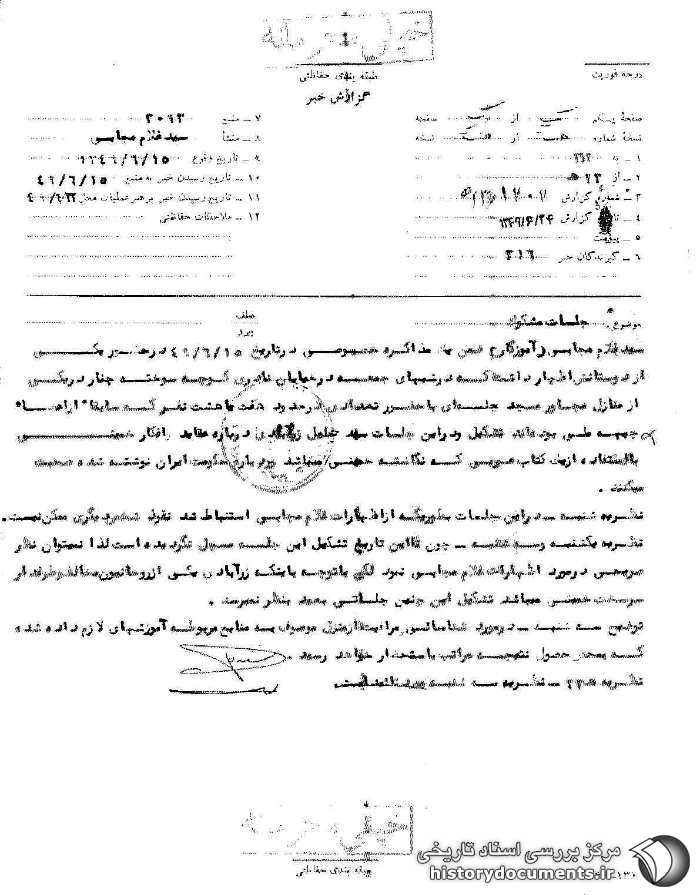 خیلی محرمانه
طبقه بندی حفاظتی
درجه فوریت
گزارش خبر
صفحه یکم از یک صفحه
نسخه شماره از نسخه
۱ ـ به ۳۱۲
۲ ـ از
۳ ـ شماره گزارش
۴ ـ گزارش
۵ ـ پیوست
۶ ـ گیرندگان خبر ۳۱۶
۷ ـ منبع ۲۰۹۳
۸ ـ منشأ سید غلام مجابی
۹ ـ تاریخ وقوع ۱۳۴۹/۶/۱۵
۱۰ ـ تاریخ رسیدن خبر به منبع ۴۹/۶/۱۵
۱۱ ـ تاریخ رسیدن خبر به رهبر عملیات محل
۱۲ ـ ملاحظات حفاظتی
موضوع : جلسات مشکوک
عطف
پیرو
سید غلام مجابی (آموزگار) ضمن یک مذاکره خصوصی در تاریخ ۴۹/۶/۱۵ در حضور یکی
از دوستانش اظهار داشت که در شبهای جمعه در خیابان نادری کوچه سوخته چنار در یکی
از منازل مجاور مسجد جلسه‌ای با حضور تعدادی در حدود هفت یا هشت نفر که سابقا
جبهه ملی بوده‌اند تشکیل و در این جلسات سید جلیل زرآبادی درباره عقاید و افکار خمینی
با استفاده از یک کتاب عربی که نگاشته خمینی میباشد و درباره حکومت ایران نوشته شده صحبت
میکند .
نظریه شنبه ـ در این جلسات بطوریکه از اظهارات غلام مجابی استنباط شد نفوذ شخص دیگری ممکن نیست .
نظریه یکشنبه و سه شنبه ـ چون تا این تاریخ تشکیل این جلسه مسجل نگردیده است لذا نمیتوان نظر
صریحی در مورد اظهارات غلام مجابی نمود لکن با توجه باینکه زرآبادی یکی از روحانیون مخالف و طرفدار
سرسخت خمینی میباشد تشکیل این چنین جلساتی بعید بنظر نمیرسد .
توضیح سه شنبه ـ در مورد شناسائی و مراقبت از منزل موصوف به منابع مربوطه آموزشهای لازم داده شده
که بمحض حصول نتیجه مراتب باستحضار خواهد رسید .
نظریه ـ نظریه سه شنبه مورد تائید است .
خیلی محرمانه
طبقه بندی حفاظتی
مرکز بررسی اسناد تاریخی
historydocuments.ir